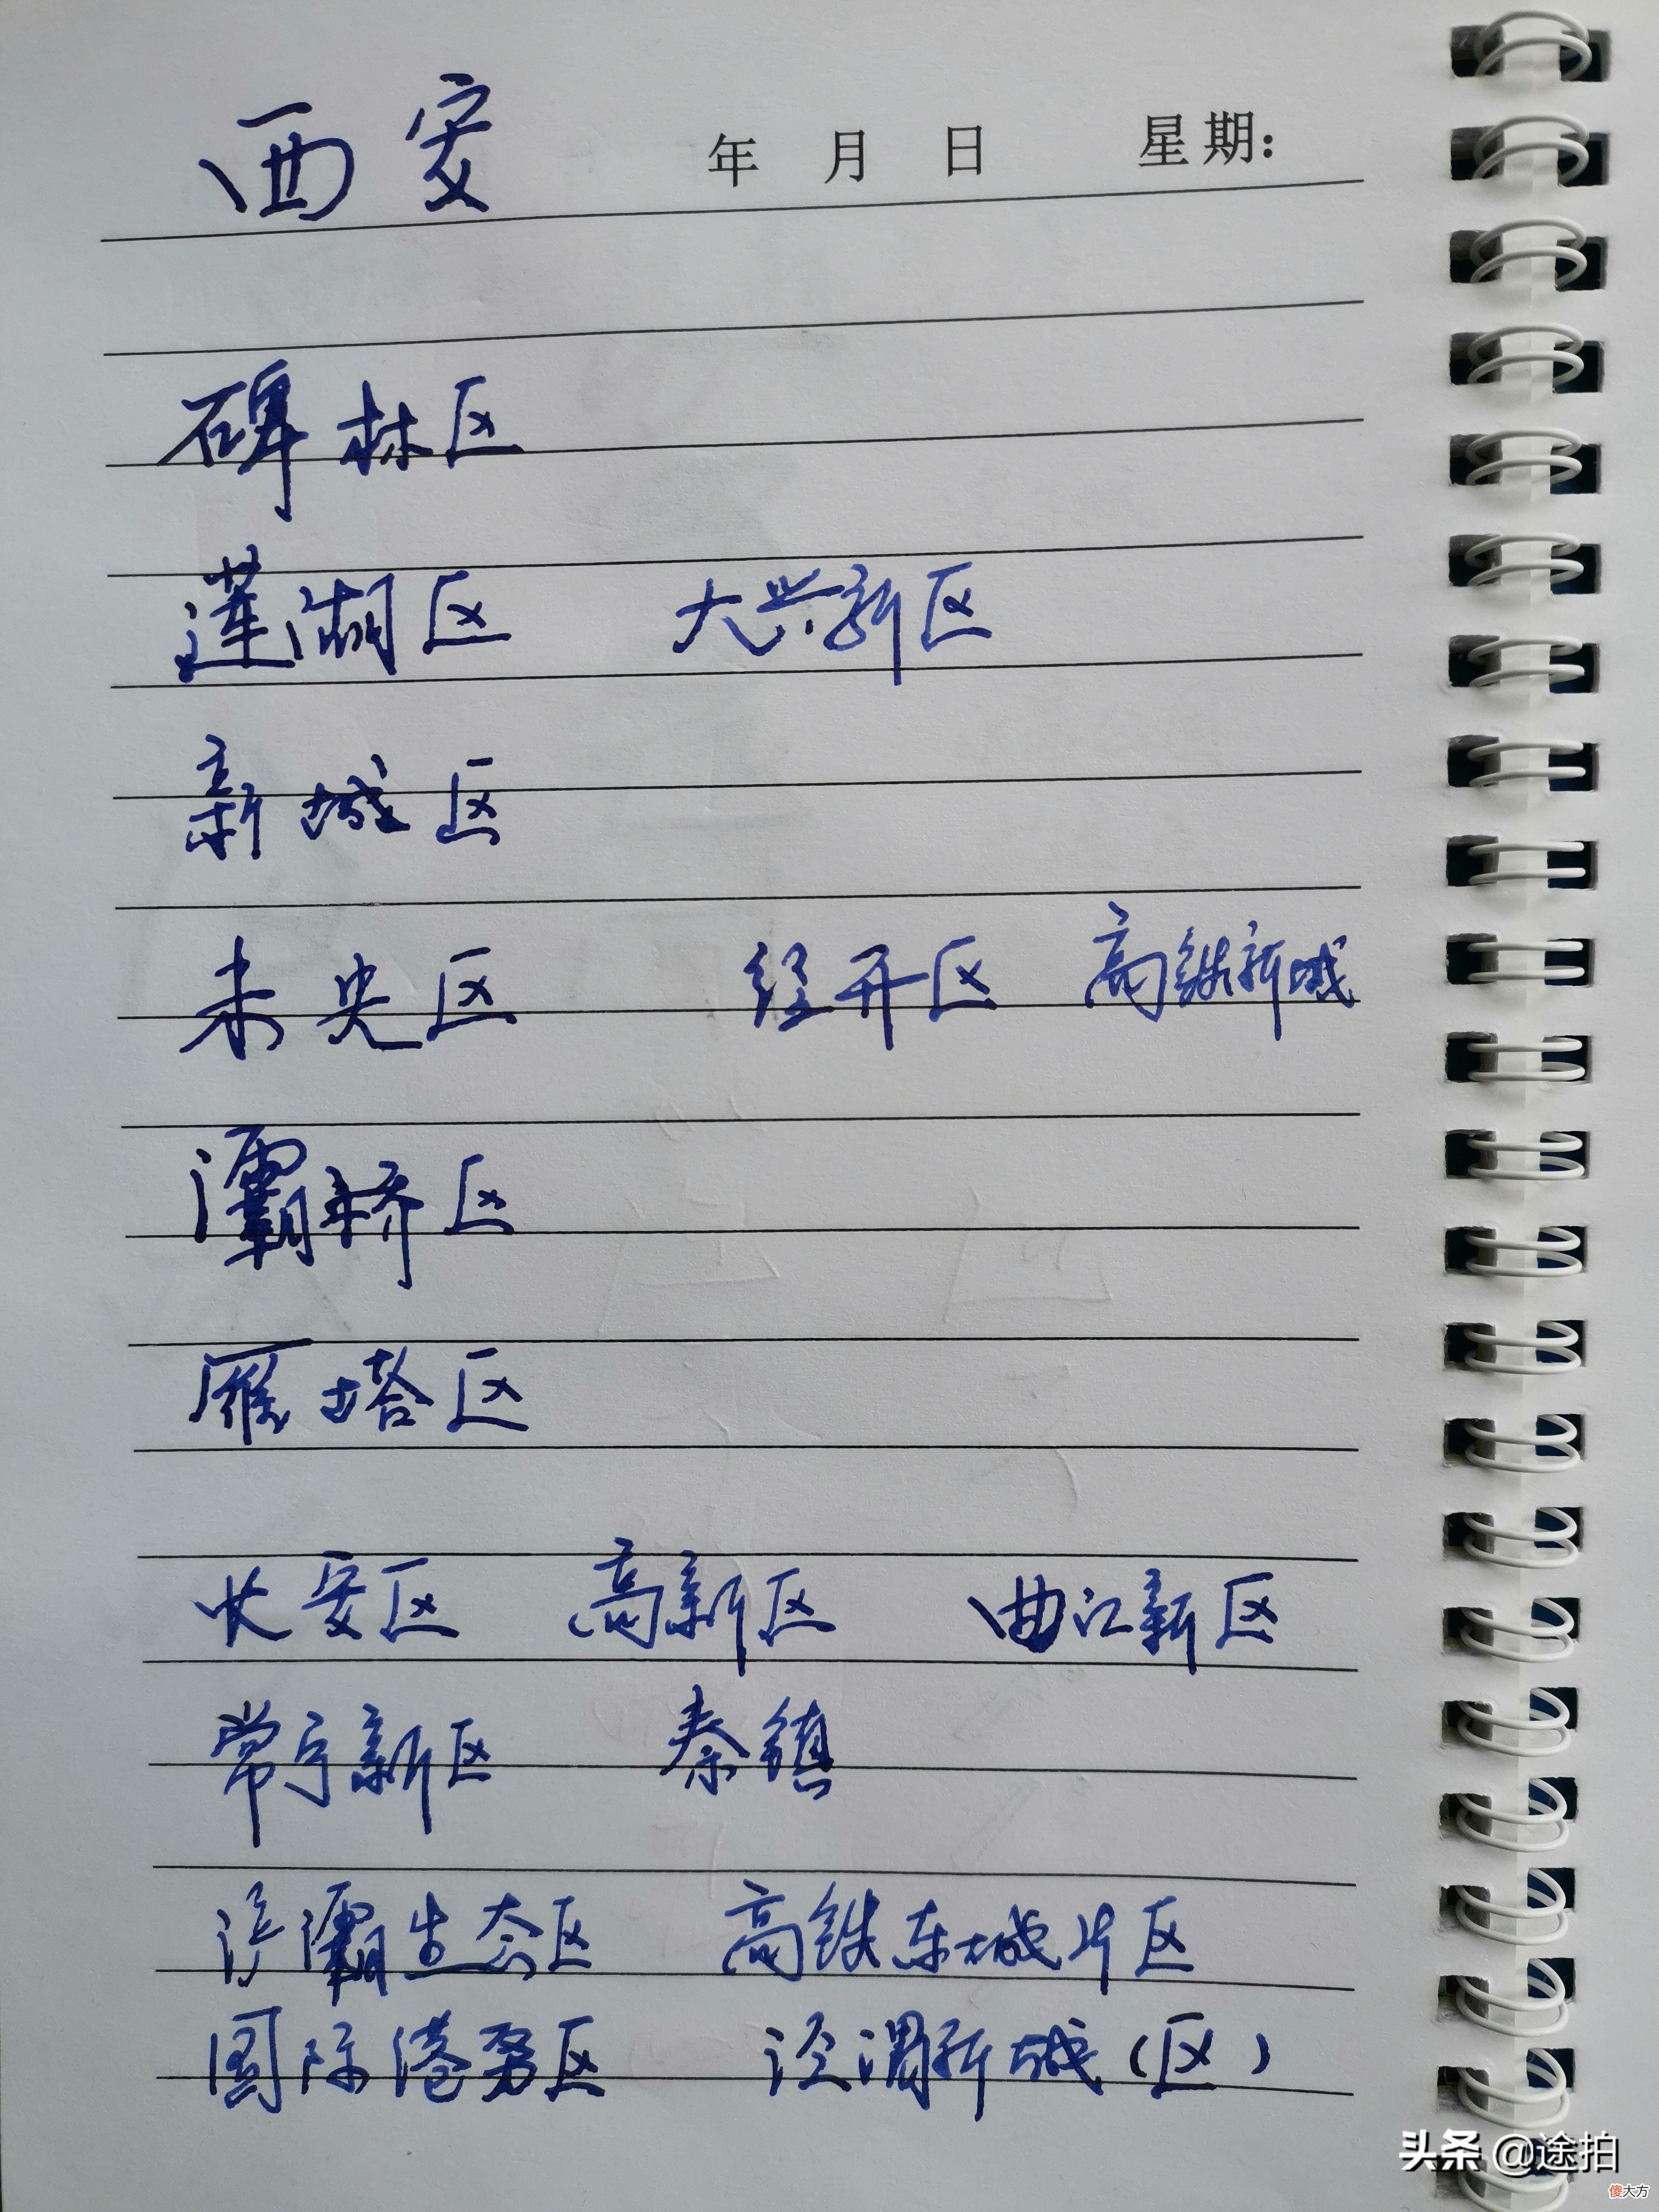 西安 年 月 日 星期:
碑林区
莲湖区 大兴新区
新城区
未央区 经开区 高铁新城
灞桥区
雁塔区
长安区 高新区 曲江新区
常宁新区 秦镇
浐灞生态区 高铁东城片区
国际港务区 泾渭新城(区)
头条 @途拍
傻大方